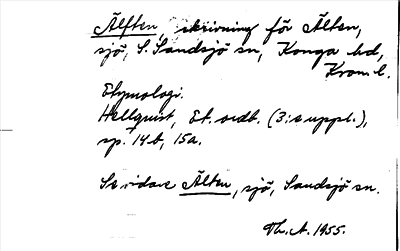 Älften, skrivning för Älten,
sjö, S. Sandsjö sn, Konga hd,
Kron. l.
Etymologi.
Hellquist, Et. ordb. (3:e uppl.),
sp. 14b, 15a.
Se vidare Älten, sjö, Sandsjö sn.
Th. A. 1955.